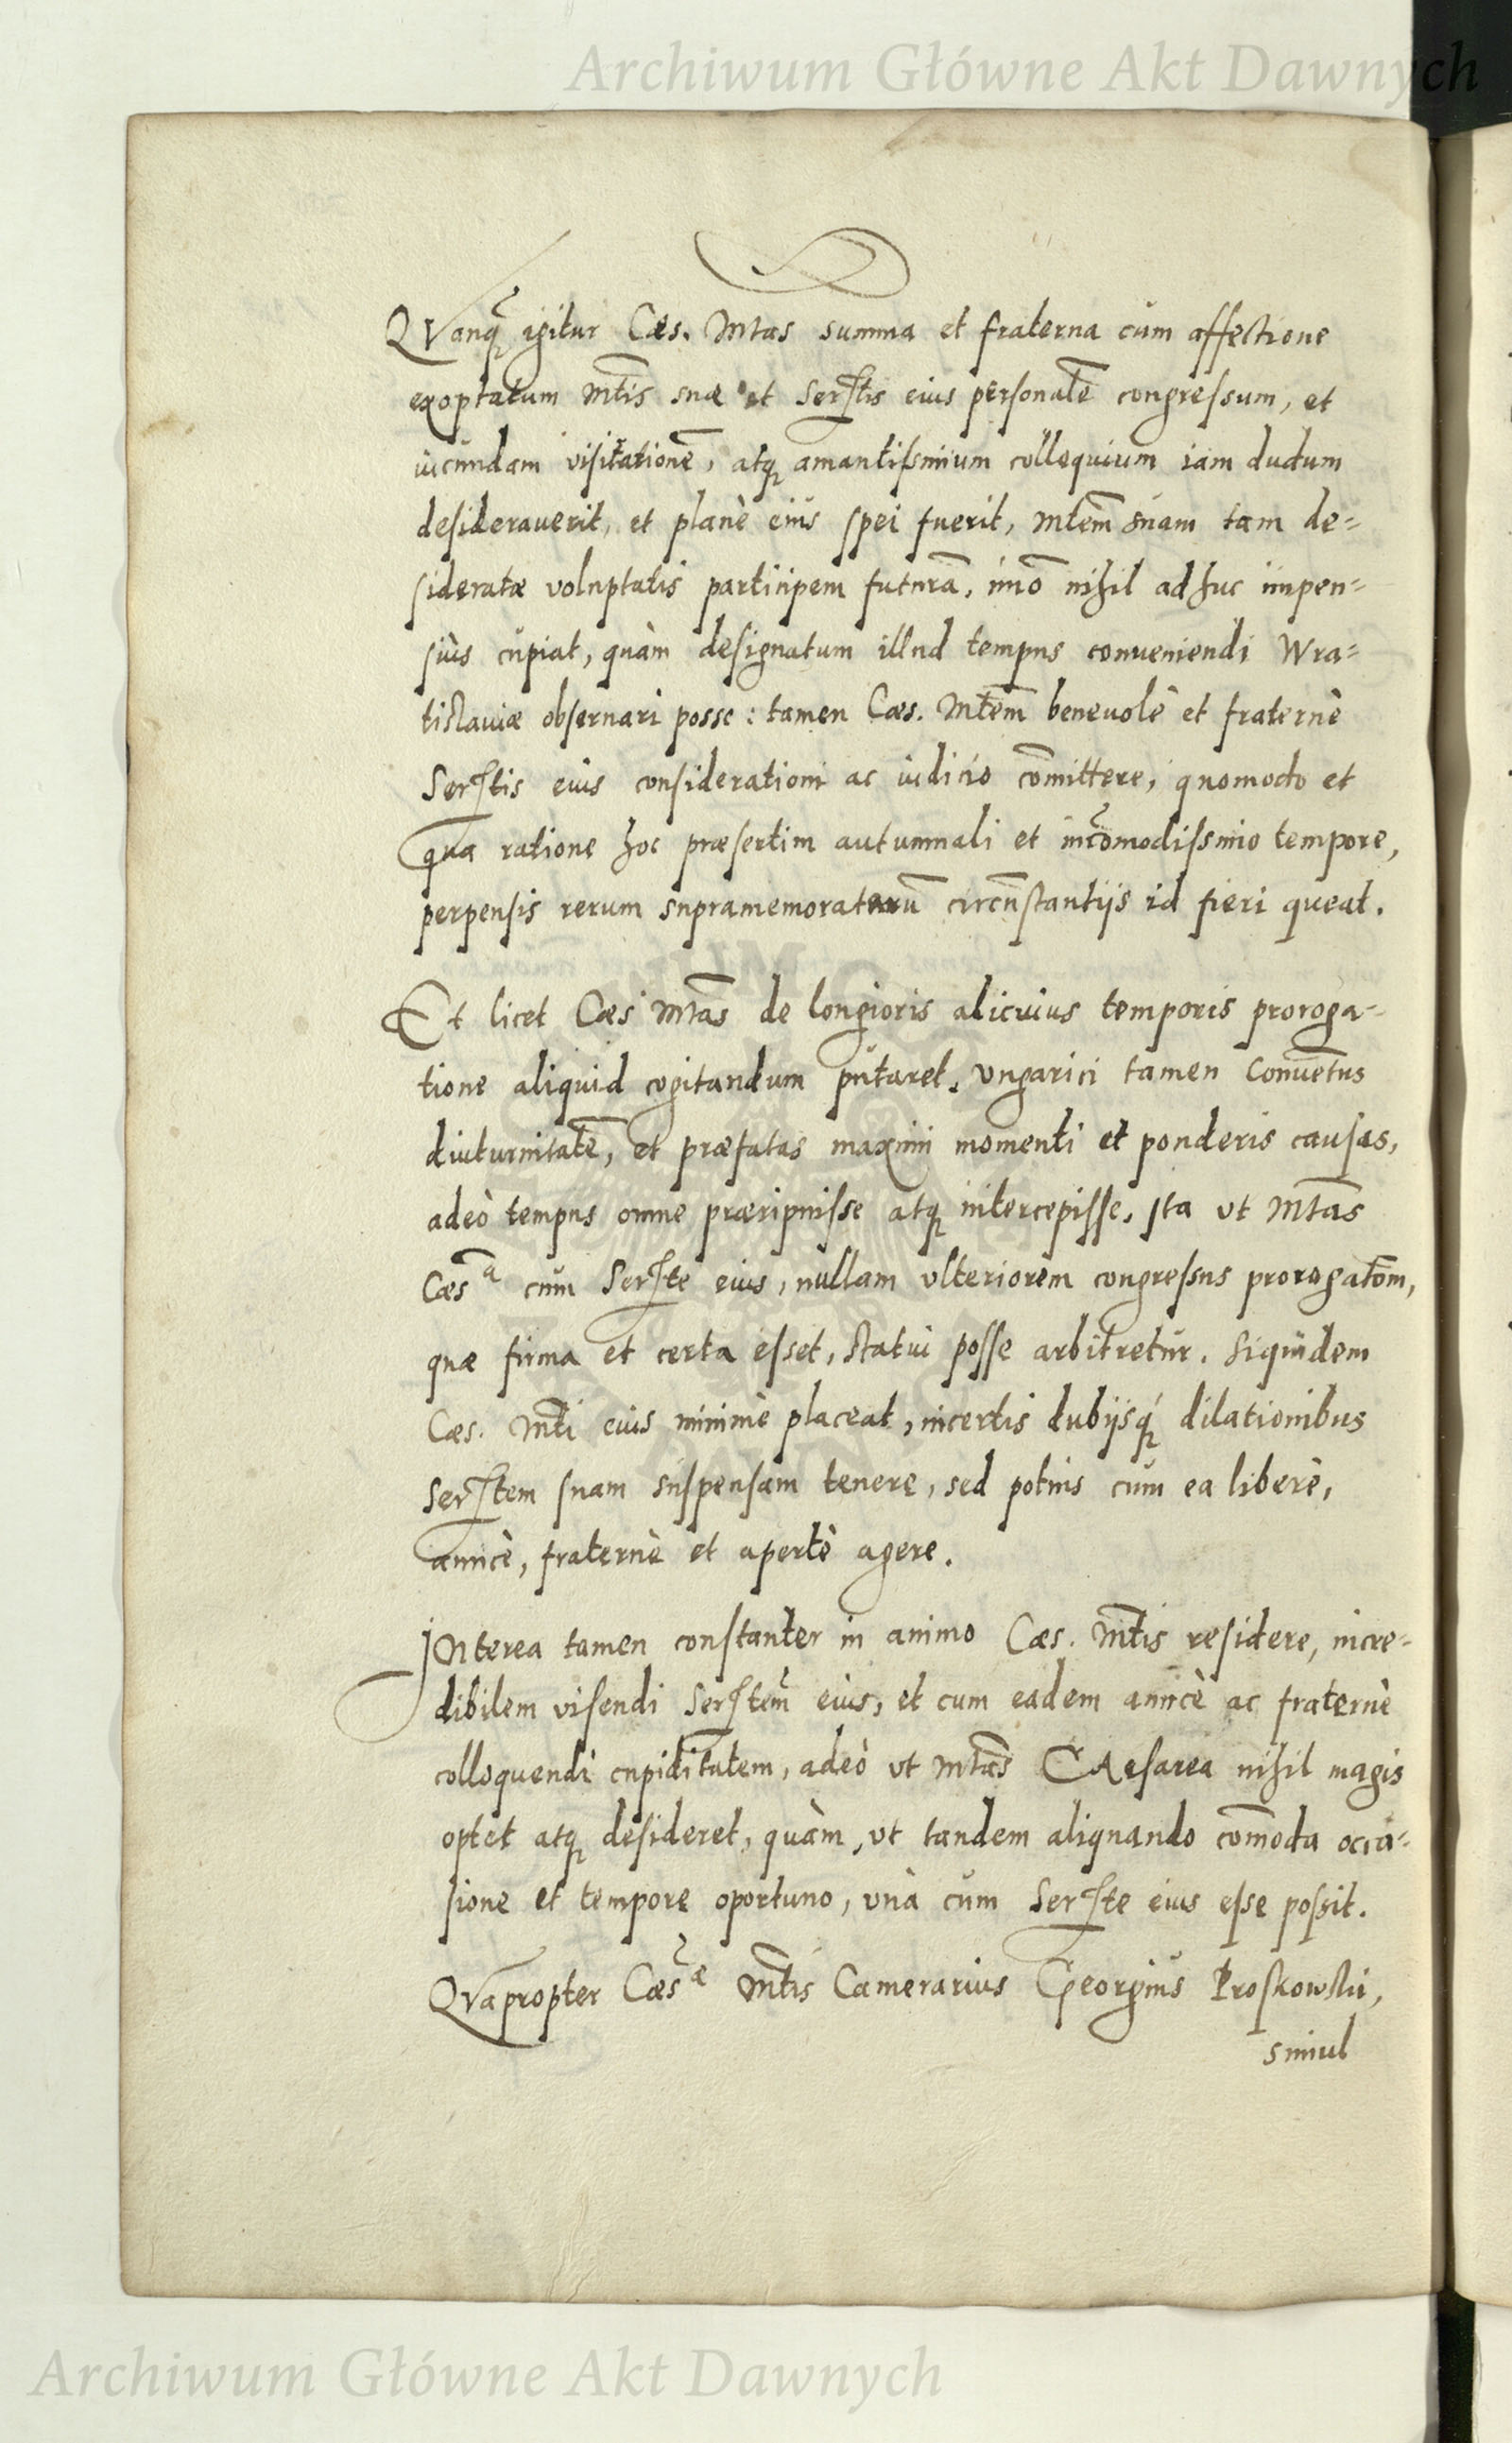 Archiwum Główne Akt Dawnych
QVanq̃ igitur Cæs. Mtas summa et fraterna cùm affectione
exoptatum Mt̃is suæ et Serſtis eius personalẽ congreſsum, et
iucundam viſitationẽ, atq; amantiſsimum colloquium iam dudum
desiderauerit, et planè eius spei fuerit, Mt̃em suam tam de=
sideratæ voluptatis participem futurã, imò nihil adhuc impen=
siùs cupiat, quàm designatum illud tempus conueniendi Wra=
tislauiæ obseruari posse: tamen Cæs. Mt̃em beneuolè et fraternè
Serſtis eius considerationi ac iudicio com̃ittere, quomodo et
qua ratione hoc præsertim autumnali et incom̃odiſsimo tempore,
perpensis rerum supramemoratarũ circũstantijs id fieri queat.
Et licet Cæs. Mtãs de longioris alicuius temporis proroga=
tione aliquid cogitandum putaret, Vngarici tamen Conuẽtus
diuturnitatẽ, et præfatas maximi momenti et ponderis causas,
adeò tempus omne præripuiſse atq; intercepiſse, Ita ut Mtãs
Cæsᵃ cum Serſte eius, nullam vlteriorem congreſsus prorogatõm,
quæ firma et certa eſset, statui poſse arbitretur. Siquidem
Cæs. Mt̃i eius minimè placeat, incertis dubijsq́; dilationibus
Serſtem suam suspensam tenere, sed potius cum ea liberè,
amicè, fraternè et apertè agere.
INterea tamen constanter in animo Cæs. Mt̃is residere, incre=
dibilem visendi Serſtem̃ eius, et cum eadem amicè ac fraternè
colloquendi cupiditatem, adeò ut Mtãs CAesarea nihil magis
optet atq; desideret, quàm, vt tandem aliquando com̃oda occa=
sione et tempore oportuno, vnà cùm Serſte eius eſse poſsit.
QVapropter Cæsᵃᵉ Mt̃is Camerarius Georgius Proskowski,
simul
Archiwum Główne Akt Dawnych